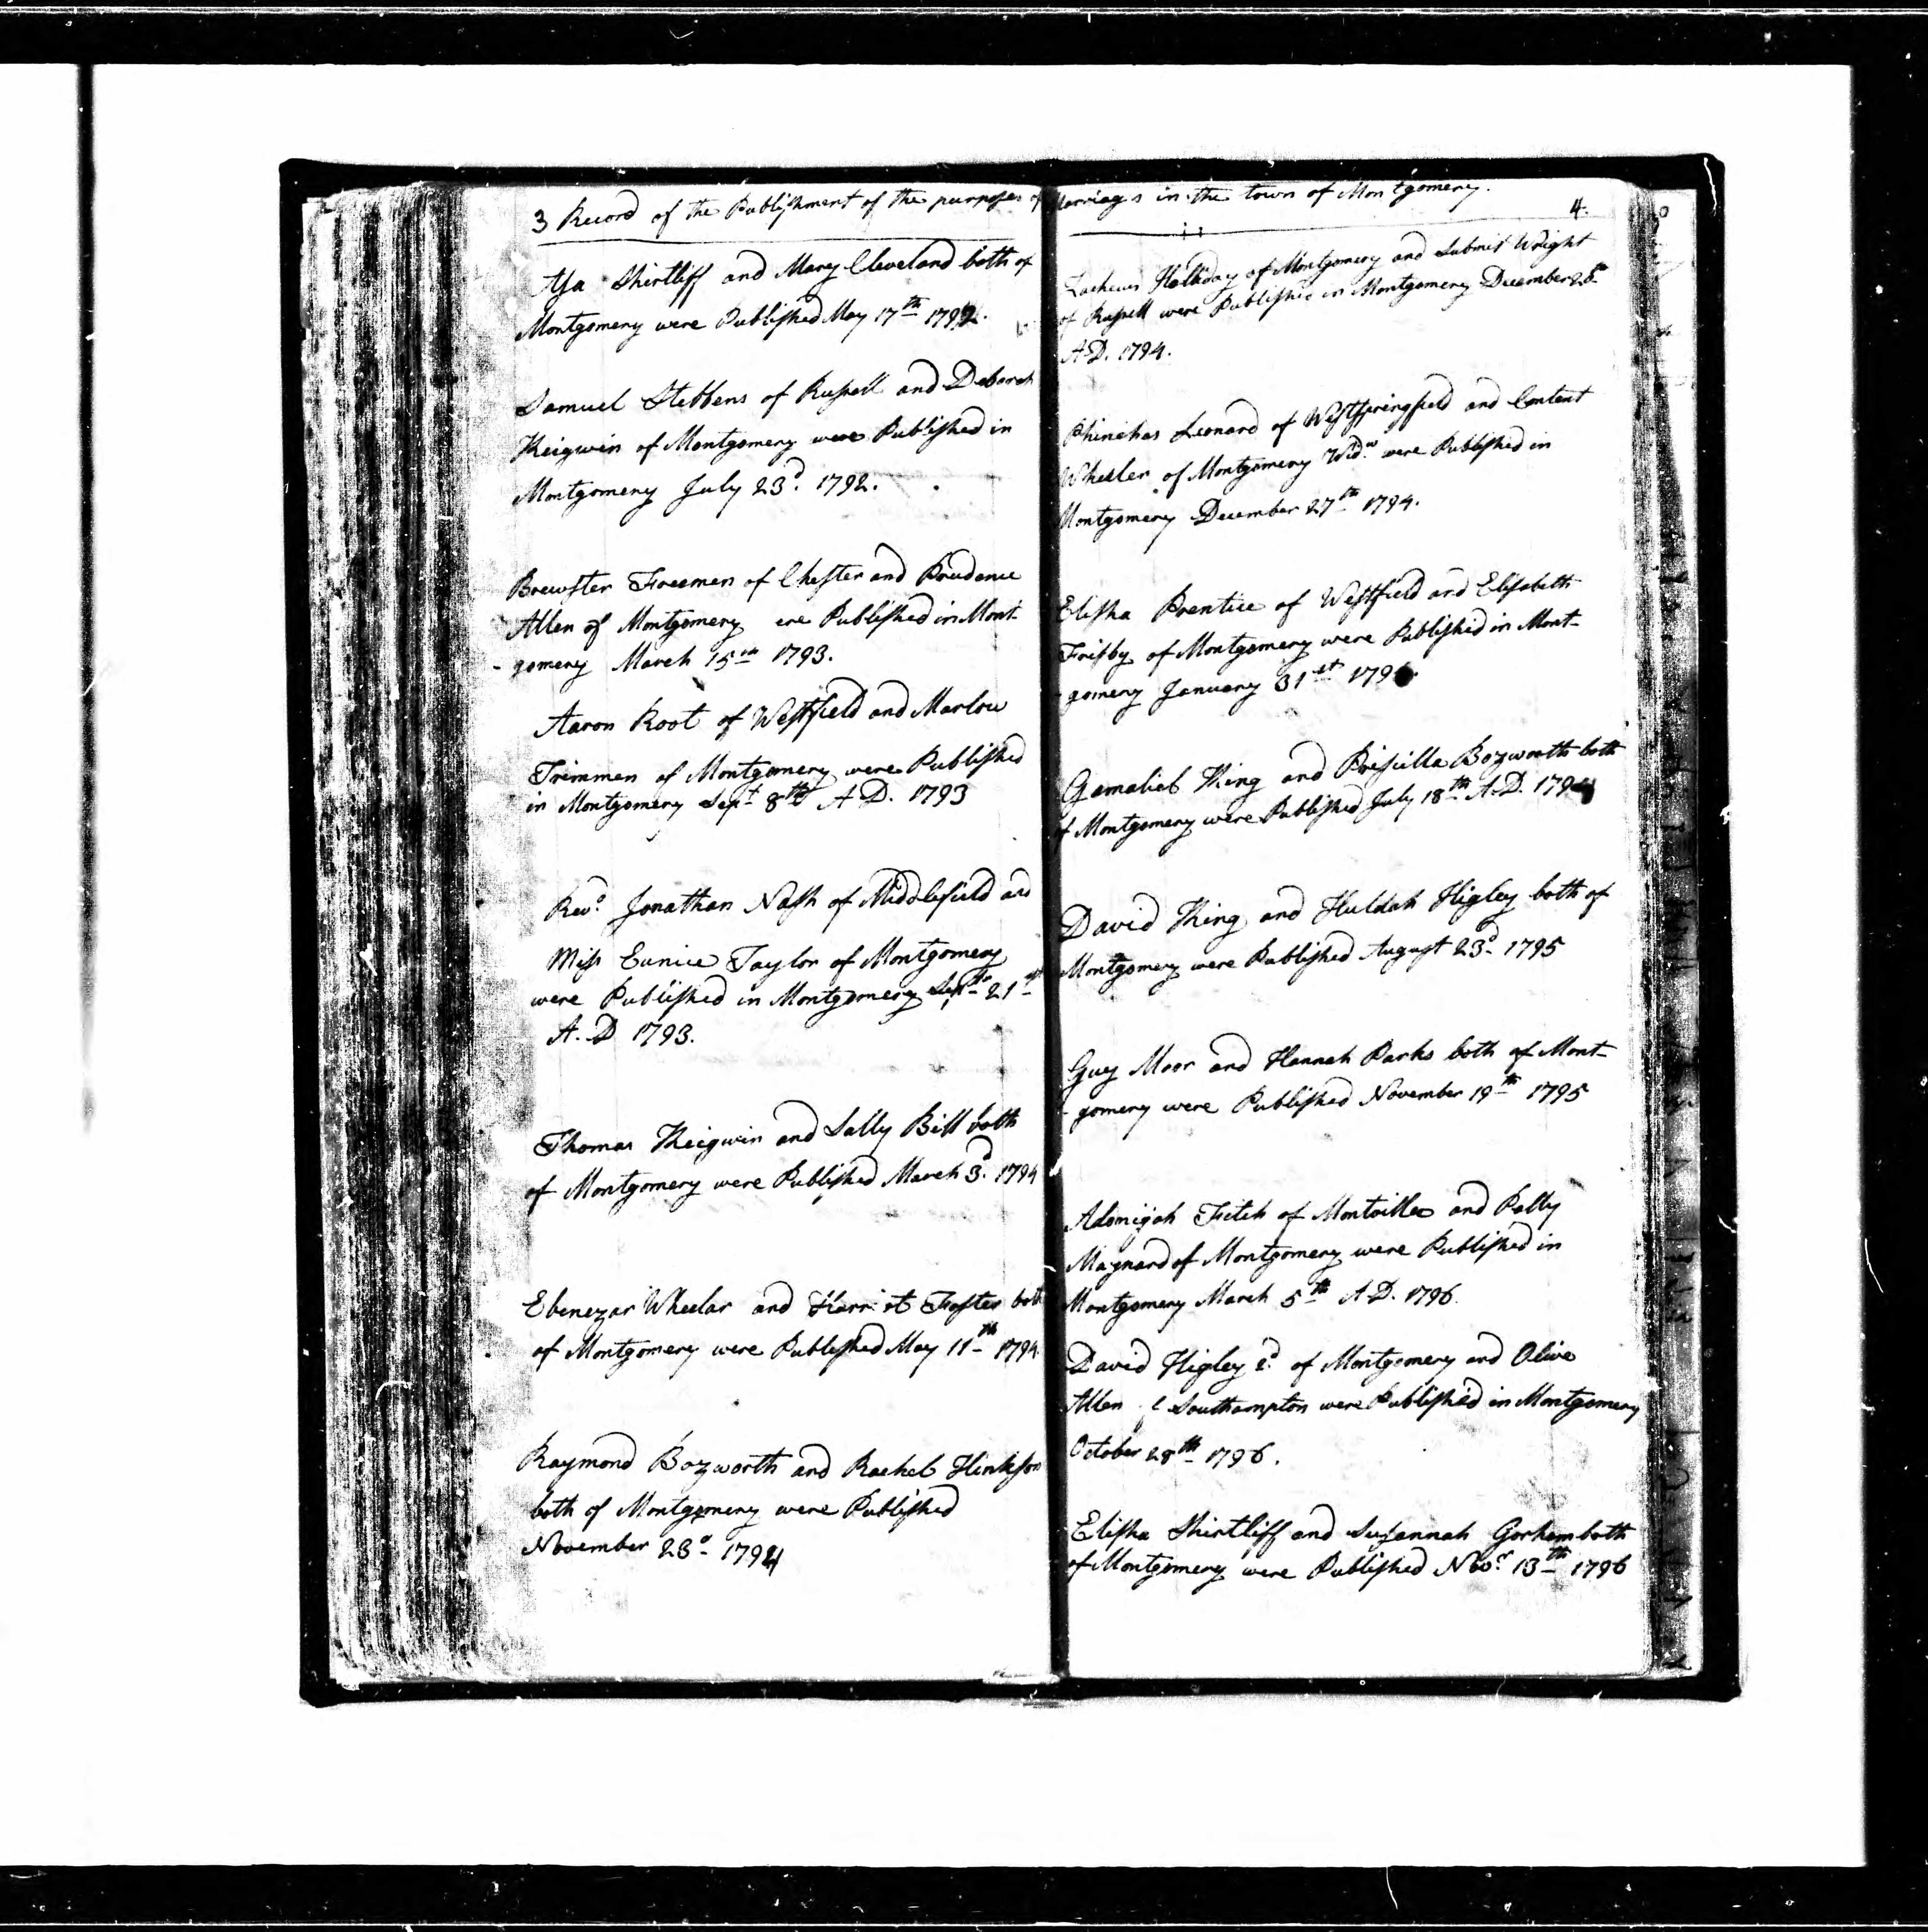 3 Record of the Publishment of the purposes of
Asa Shirtliff and Mary Cleveland both of
Montgomery were Published May 17th 1792.
Samuel Stebbens of Russell and Deborah
Keigwin of Montgomery were Published in
Montgomery July 23d. 1792.
Brewster Freeman of Chester and Prudence
Allen of Montgomery ere Published in Mont-
-gomery March 15th 1793.
Aaron Root of Westfield and Marlow
Trimmen of Montgomery were Published
in Montgomery Sept 8th A.D. 1793
Revd. Jonathan Nash of Middlefield and
Miss Eunice Taylor of Montgomery
were Published in Montgomery Sept. 21st
A.D 1793.
Thomas Keigwin and Sally Bill both
of Montgomery were Published March 3d. 1794
Ebenezar Wheelar and Harriot Foster both
of Montgomery were Published May 11th 1794
Raymond Bozworth and Rachel Hinkson
both of Montgomery were Published
November 23d 1794
Marriages in the town of Montgomery. 4.
Zacheus Halladay of Montgomery and Submit Wright
of Russell were Published in Montgomery December
A.D. 1794.
Phinehas Leonard of Westspringfield and Content
Wheeler of Montgomery Widw. were Published in
Montgomery December 27th 1794.
Elisha Prentice of Westfield and Elisabeth
Frisby of Montgomery were Published in Mont-
-gomery January 31st
Gamaliel King and Priscilla Bozworth both
of Montgomery were Published July 18th A.D. 1794
David King and Huldah Higley both of
Montgomery were Published August 23d 1795
Guy Moor and Hannah Parks both of Mont-
-gomery were Published November 19th 1795
Adonijah Fitch of Montville and Polly
Maynard of Montgomery were Published in
Montgomery March 5th A.D. 1796.
David Higley 2d. of Montgomery and Olive
Allen of Southampton were Published in Montgomery
October 28th 1796.
Elisha Shirtliff and Suzannah Gorham both
of Montgomery were Published Novr. 13th 1796